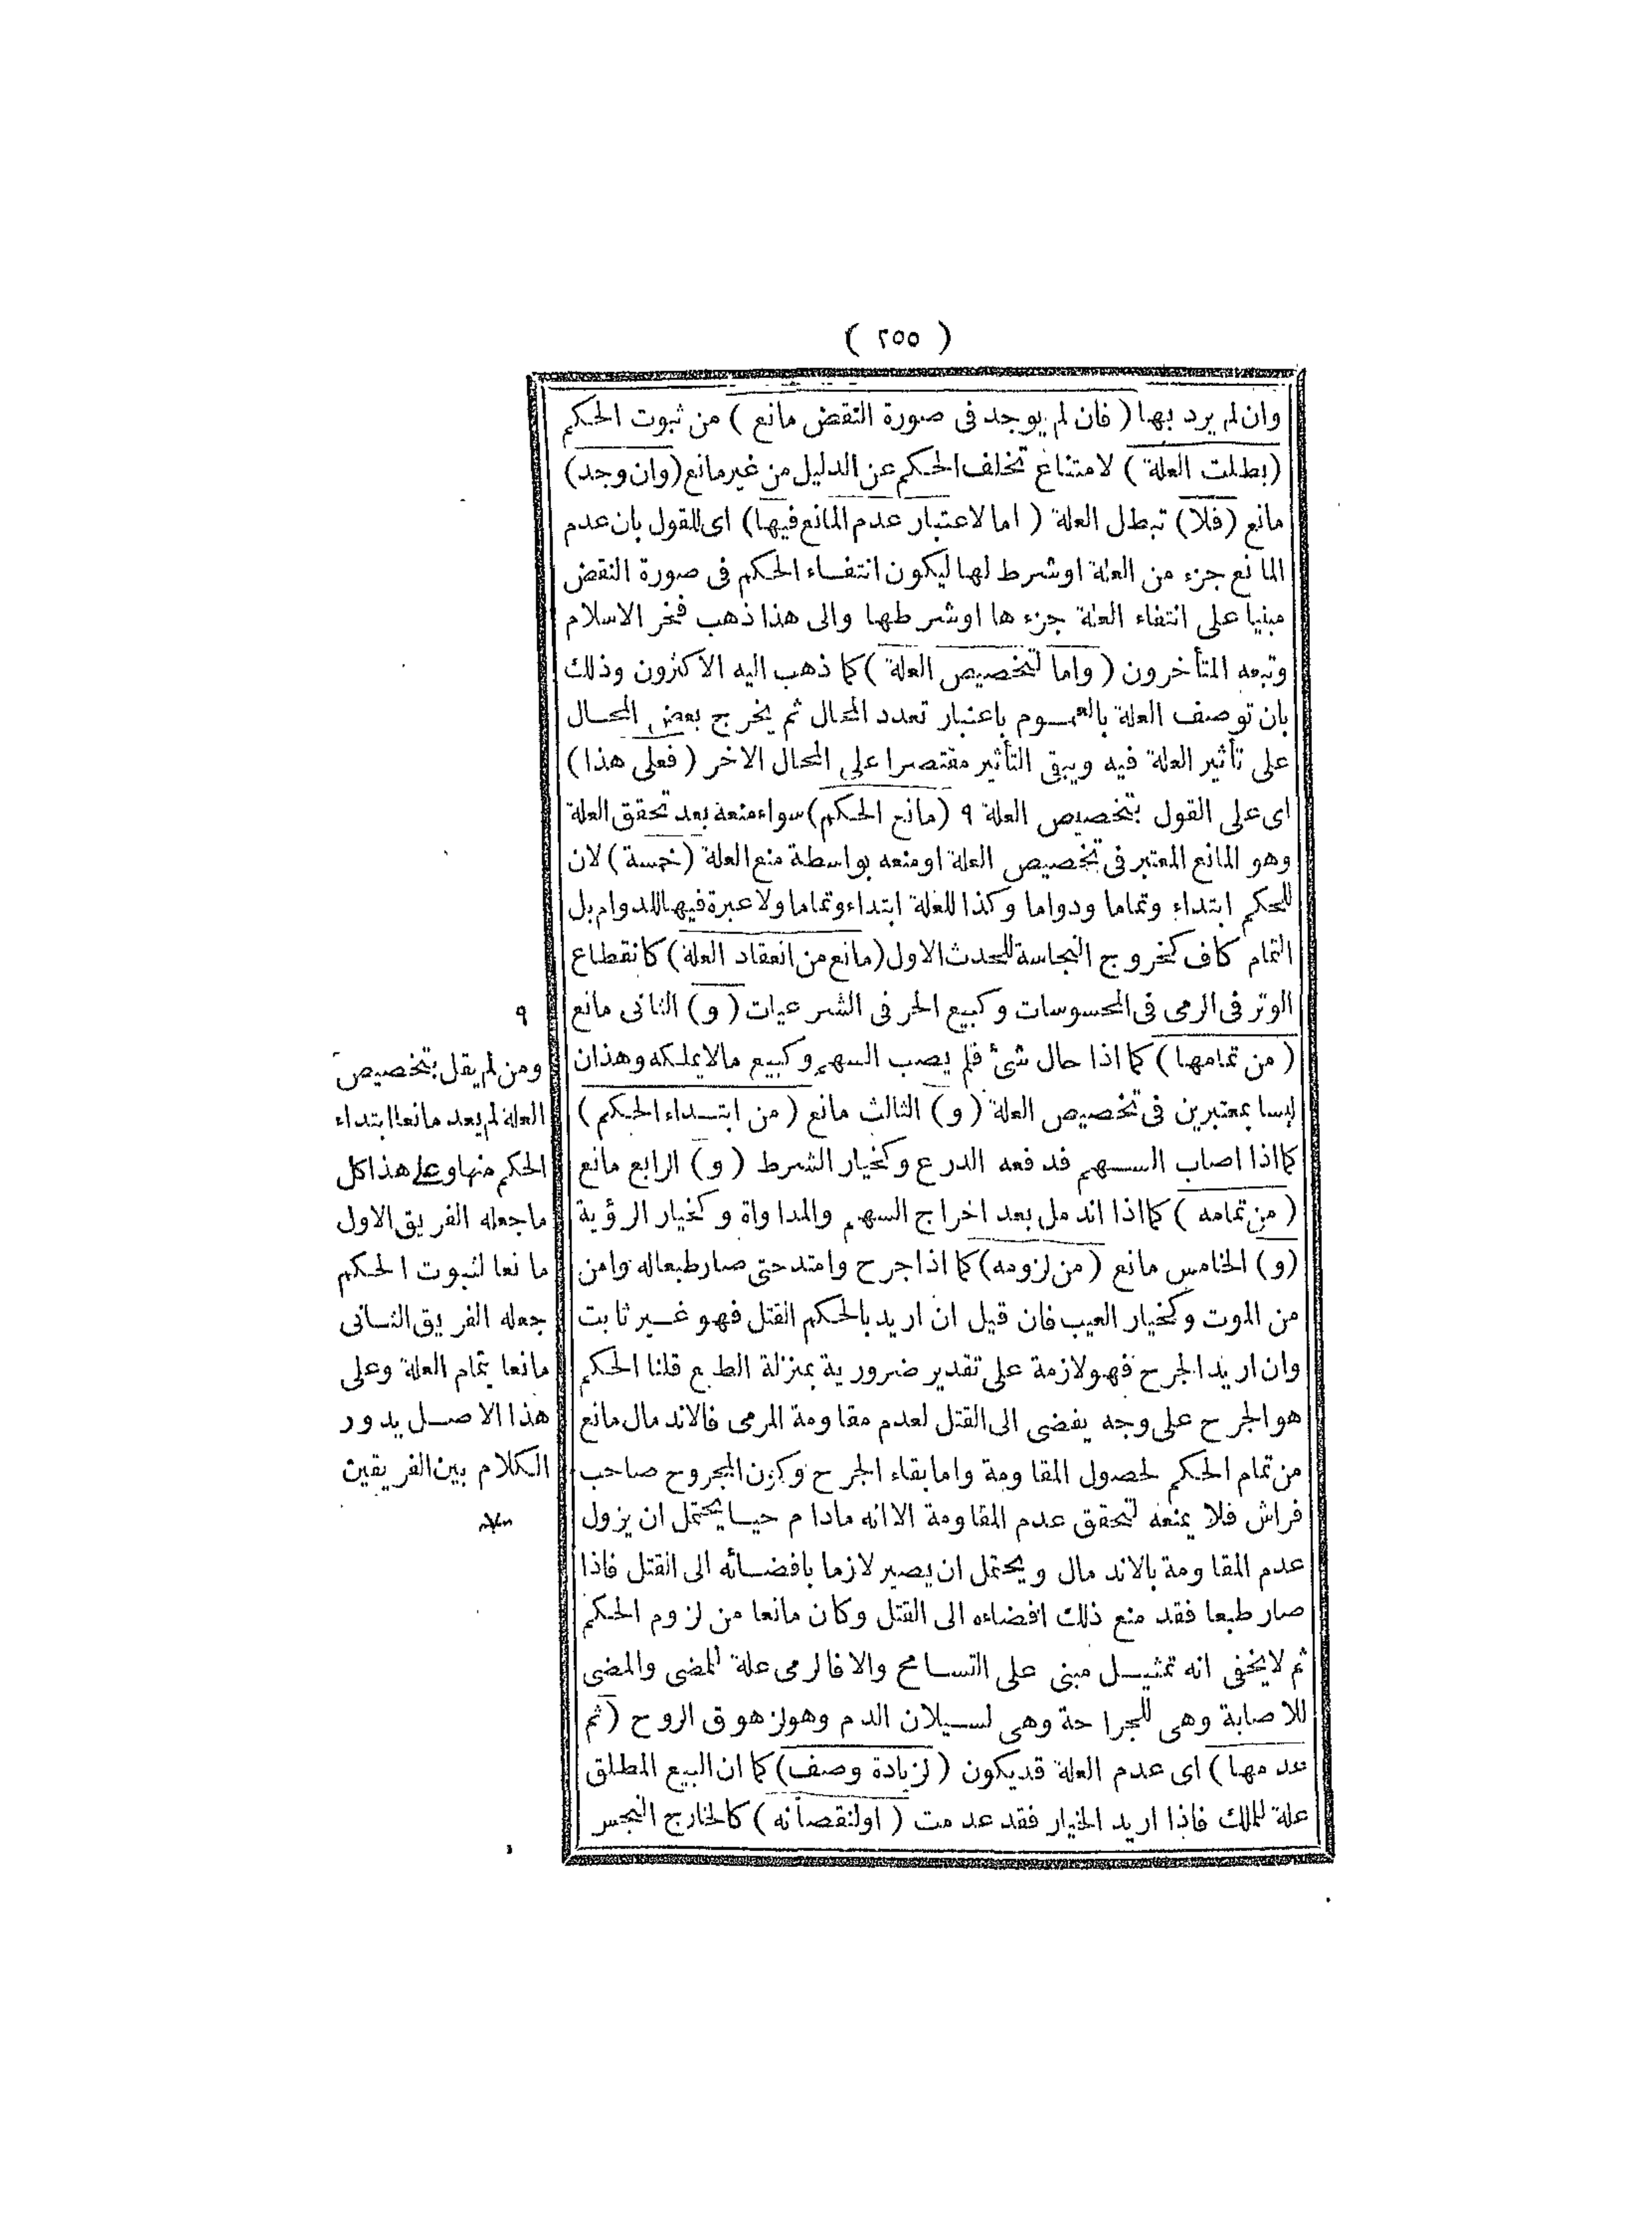 ( ٢٥٥ )
وان لم يرد بها ( فان لم يوجد فى صورة النقض مانع ) من ثبوت الحكم
(بطلت العلة ) لامتناع تخلف الحكم عن الدليل من غير مانع (وان وجد)
مانع (فلا) تبطل العلة ( اما لاعتبار عدم المانع فيها) اى للقول بان عدم
المانع جزء من العلة او شرط لها ليكون انتفاء الحكم فى صورة النقض
مبنيا على انتفاء العلة جزءها او شرطها والى هذا ذهب فخر الاسلام
وتبعه المتأخرون ( واما لتخصيص العلة ) كما ذهب اليه الاكثرون وذلك
بان توصف العلة بالعموم باعتبار تعدد المحال ثم يخرج بعض المحال
على تأثير العلة فيه ويبقى التأثير مقتصرا على المحال الاخر ( فعلى هذا )
اى على القول بتخصيص العلة ٩ ( مانع الحكم ) سواء منعه بعد تحقق العلة
وهو المانع المعتبر فى تخصيص العلة او منعه بواسطة منع العلة ( خمسة ) لان
للحكم ابتداء وتماما ودواما وكذا للعلة ابتداء وتماما ولا عبرة فيها للدوام بل
التمام كاف كخروج النجاسة للحدث الاول (مانع من انعقاد العلة) كانقطاع
الوتر فى الرمى فى المحسوسات وكبيع الحر فى الشرعيات ( و ) الثانى مانع
( من تمامها ) كما اذا حال شئ فلم يصب السهم وكبيع مالا يملكه وهذان
ليسا بمعتبرين فى تخصيص العلة ( و ) الثالث مانع ( من ابتداء الحكم )
كما اذا اصاب السهم فدفعه الدرع وكخيار الشرط ( و ) الرابع مانع
( من تمامه ) كما اذا اندمل بعد اخراج السهم والمداواة وكخيار الرؤية
( و ) الخامس مانع ( من لزومه ) كما اذا جرح وامتد حتى صار طبعا له وامن
من الموت وكخيار العيب فان قيل ان اريد بالحكم القتل فهو غير ثابت
وان اريد الجرح فهو لازمة على تقدير ضرورية بمنزلة الطبع قلنا الحكم
هو الجرح على وجه يفضى الى القتل لعدم مقاومة المرمى فالاندمال مانع
من تمام الحكم لحصول المقاومة واما بقاء الجرح وكون المجروح صاحب
فراش فلا يمنعه لتحقق عدم المقاومة الا انه مادام حيا يحتمل ان يزول
عدم المقاومة بالاندمال ويحتمل ان يصير لازما بافضائه الى القتل فاذا
صار طبعا فقد منع ذلك افضاءه الى القتل وكان مانعا من لزوم الحكم
ثم لا يخفى انه تمثيل مبنى على التسامح والا فالرمى علة للمضى والمضى
للاصابة وهى للجراحة وهى لسيلان الدم وهو لزهوق الروح ( ثم
عدمها ) اى عدم العلة قد يكون ( لزيادة وصف ) كما ان البيع المطلق
علة للملك فاذا اريد الخيار فقد عدمت ( او لنقصانه ) كالخارج النجس
٩
ومن لم يقل بتخصيص
العلة لم يعد مانع ابتداء
الحكم منها وعلى هذا كل
ما جعله الفريق الاول
مانعا لثبوت الحكم
جعله الفريق الثانى
مانعا بتمام العلة وعلى
هذا الاصل يدور
الكلام بين الفريقين